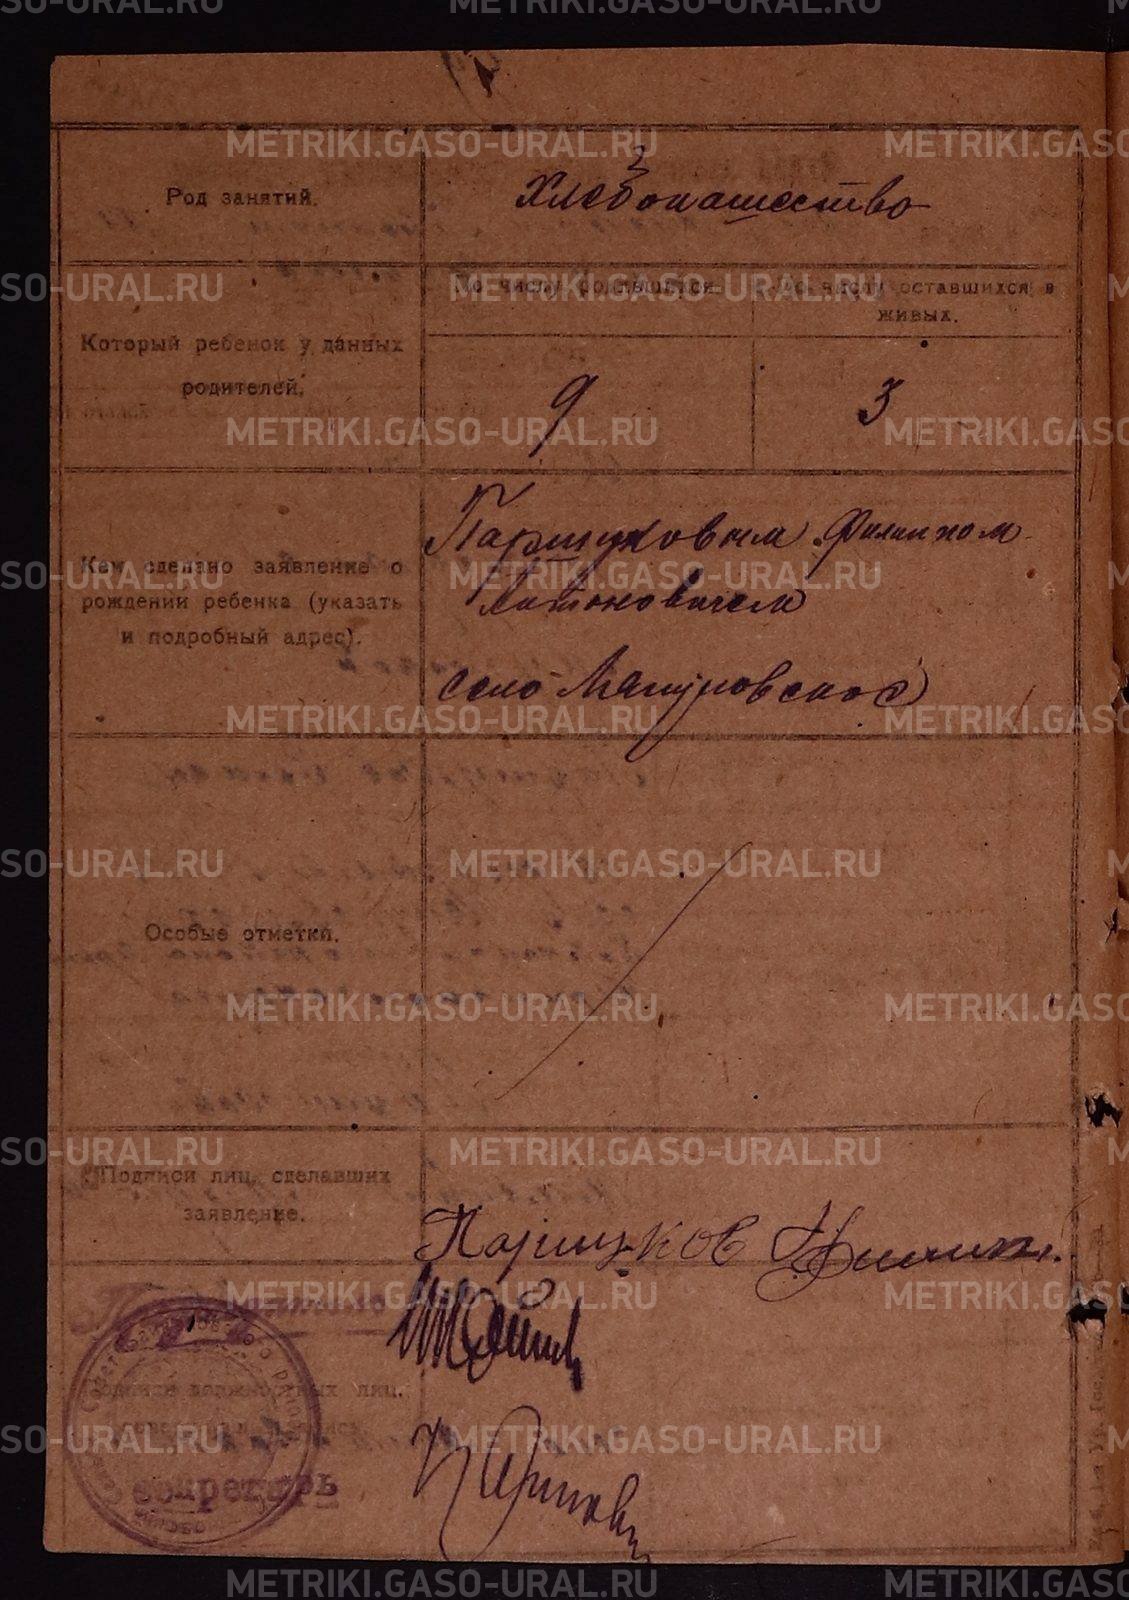 METRIKI.GASO-URAL.RU
Род занятий.
Хлебопашество
Который ребенок у данных
родителей.
По числу родившихся
По числу оставшихся в
живых.
9
3
Кем сделано заявление о
рождении ребенка (указать
и подробный адрес).
Паршуковым Филипом
Антоновичем
село
Особые отметки.
Подписи лиц, сделавших
заявление.
Паршуков Филип.
Подписи должностных лиц,
Секретарь